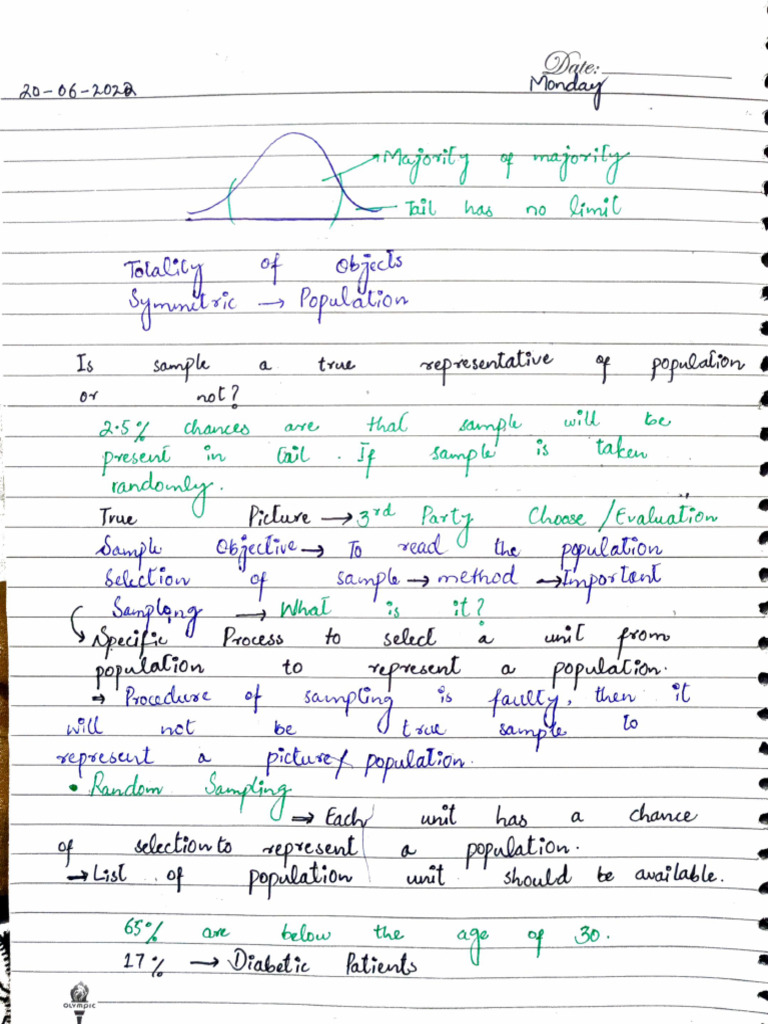 Date:
20-06-2022 Monday
Majority of majority
Tail has no limit
Totality of Objects
Symmetric → Population
Is sample a true representative of population
or not?
2.5% chances are that sample will be
present in tail. If sample is taken
randomly.
True Picture → 3rd Party Choose/Evaluation
Sample Objective → To read the population
Selection of sample → method → Important
Sampling → What is it?
Specific Process to select a unit from
population to represent a population.
→ Procedure of sampling is faulty, then it
will not be true sample to
represent a picture/population.
• Random Sampling
→ Each unit has a chance
of selection to represent a population.
→ List of population unit should be available.
65% are below the age of 30.
17% → Diabetic Patients
OLYMPIC